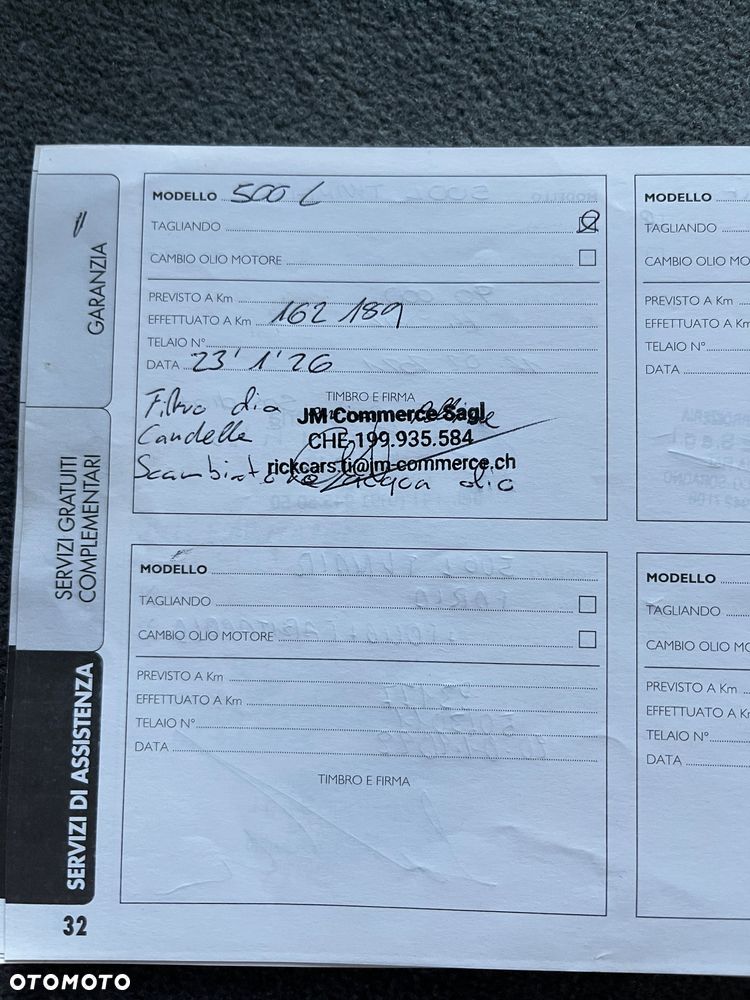 GARANZIA
SERVIZI GRATUITI
COMPLEMENTARI
SERVIZI DI ASSISTENZA
32
MODELLO 500 L
TAGLIANDO
CAMBIO OLIO MOTORE
PREVISTO A Km
EFFETTUATO A Km 162 189
TELAIO N°
DATA 23'1'26
TIMBRO E FIRMA
Filtro
Candelle
JM Commerce Sagl
CHE 199.935.584
rickcars.ti@jm-commerce.ch
acqua olio
MODELLO
TAGLIANDO
CAMBIO OLIO MOTORE
PREVISTO A Km
EFFETTUATO A Km
TELAIO N°
DATA
TIMBRO E FIRMA
MODELLO
TAGLIANDO
CAMBIO OLIO MO
PREVISTO A Km
EFFETTUATO A Km
TELAIO N°
DATA
MODELLO
TAGLIANDO
CAMBIO OLIO MO
PREVISTO A Km
EFFETTUATO A K
TELAIO N°
DATA
OTOMOTO